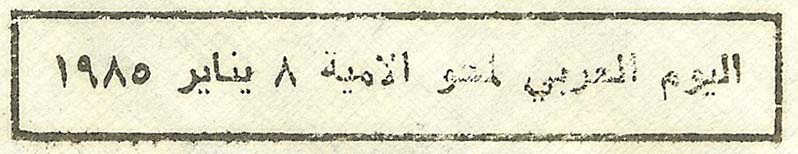 اليوم العربي لمحو الامية ٨ يناير ١٩٨٥